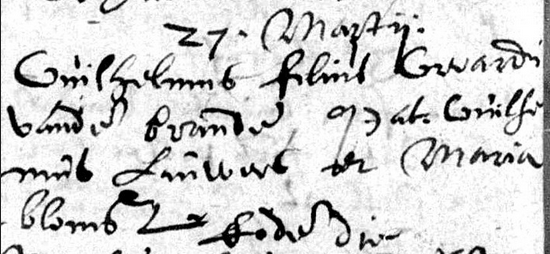 27. Martij.
Guilhelmus filius Gerardi
vande brande, Pat. Guilhel
mus Lauwers et Maria
bloms Eode die